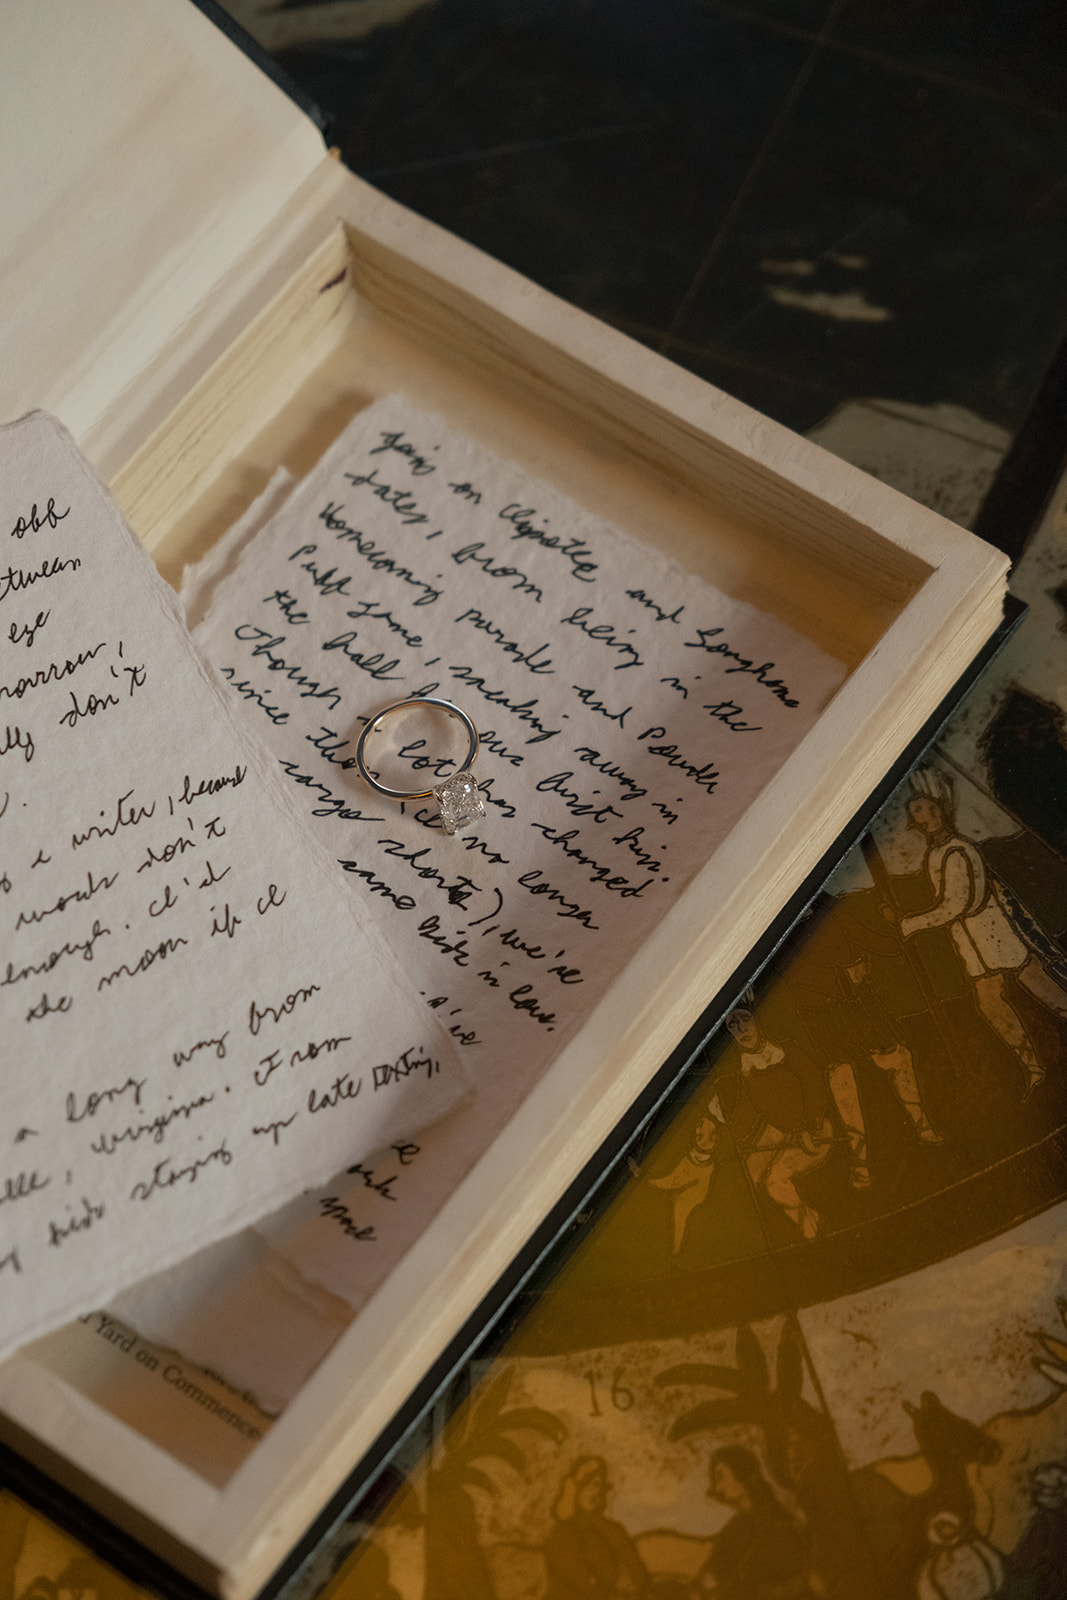 off
between
eye
marrow,
don't
a writer, because
words don't
enough. I'd
the moon if I
a long way from
, Virginia. From
kids staying up late texting,
going on Chipotle and Songhana
dates, from being in the
Homecoming parade and Powder
Puff game, sneaking away in
the hall for our first kiss.
Though a lot has changed
since then (I no longer
cargo shorts), we're
same kids in love.
Yard on Commence
16